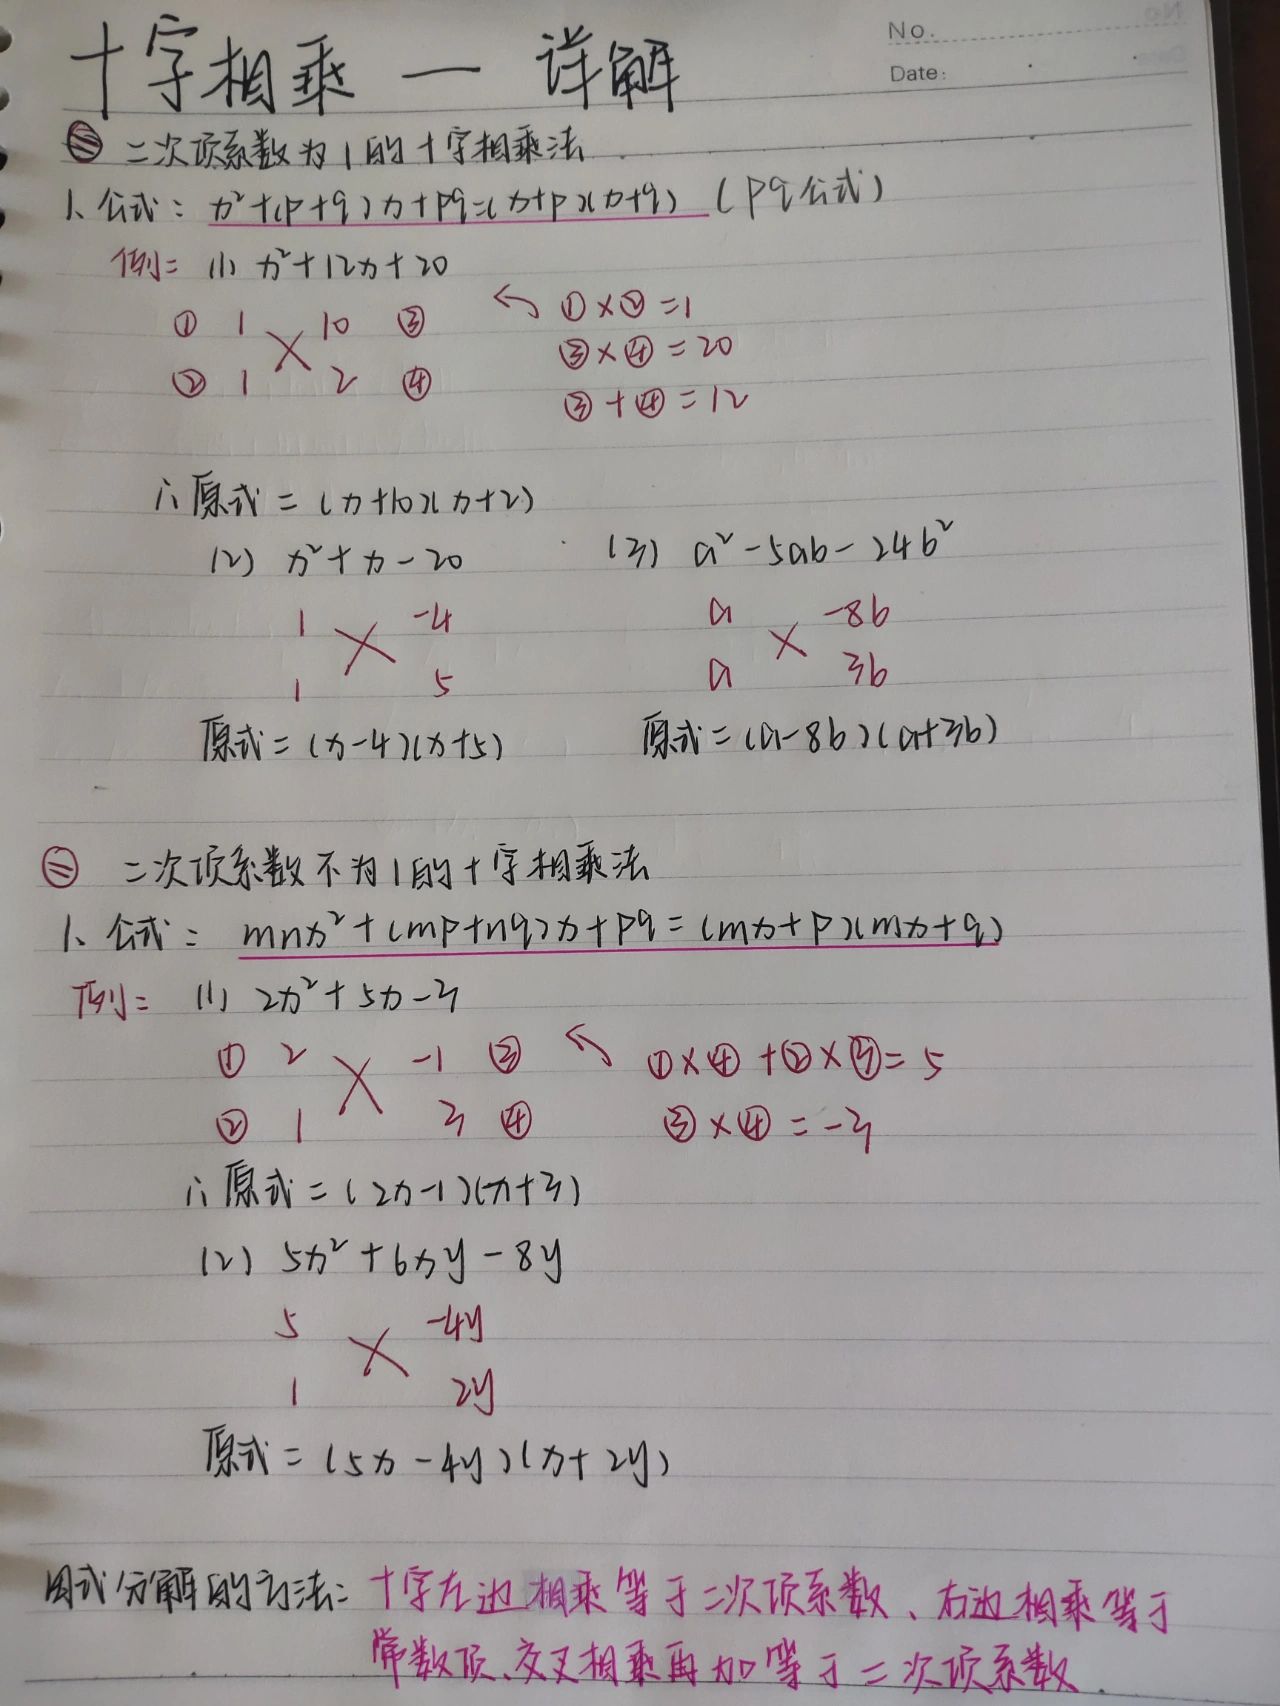 No.
Date:
十字相乘 — 详解
㊀ 二次项系数为1的十字相乘法
1、公式: x²+(p+q)x+pq=(x+p)(x+q) (pq公式)
例= (1) x²+12x+20
① 1 10 ③ ①×②=1
③×④=20
② 1 2 ④
③+④=12
∴原式=(x+10)(x+2)
(2) x²+x-20 (3) a²-5ab-24b²
1 -4 a -8b
1 5 a 3b
原式=(x-4)(x+5) 原式=(a-8b)(a+3b)
㊁ 二次项系数不为1的十字相乘法
1、公式: mnx²+(mp+nq)x+pq=(mx+p)(mx+q)
例= (1) 2x²+5x-3
① 2 -1 ③ ①×④+②×③=5
② 1 3 ④ ③×④=-3
∴原式=(2x-1)(x+3)
(2) 5x²+6xy-8y
5 -4y
1 2y
原式=(5x-4y)(x+2y)
因式分解的方法: 十字左边相乘等于二次项系数、右边相乘等于
常数项、交叉相乘再加等于二次项系数.